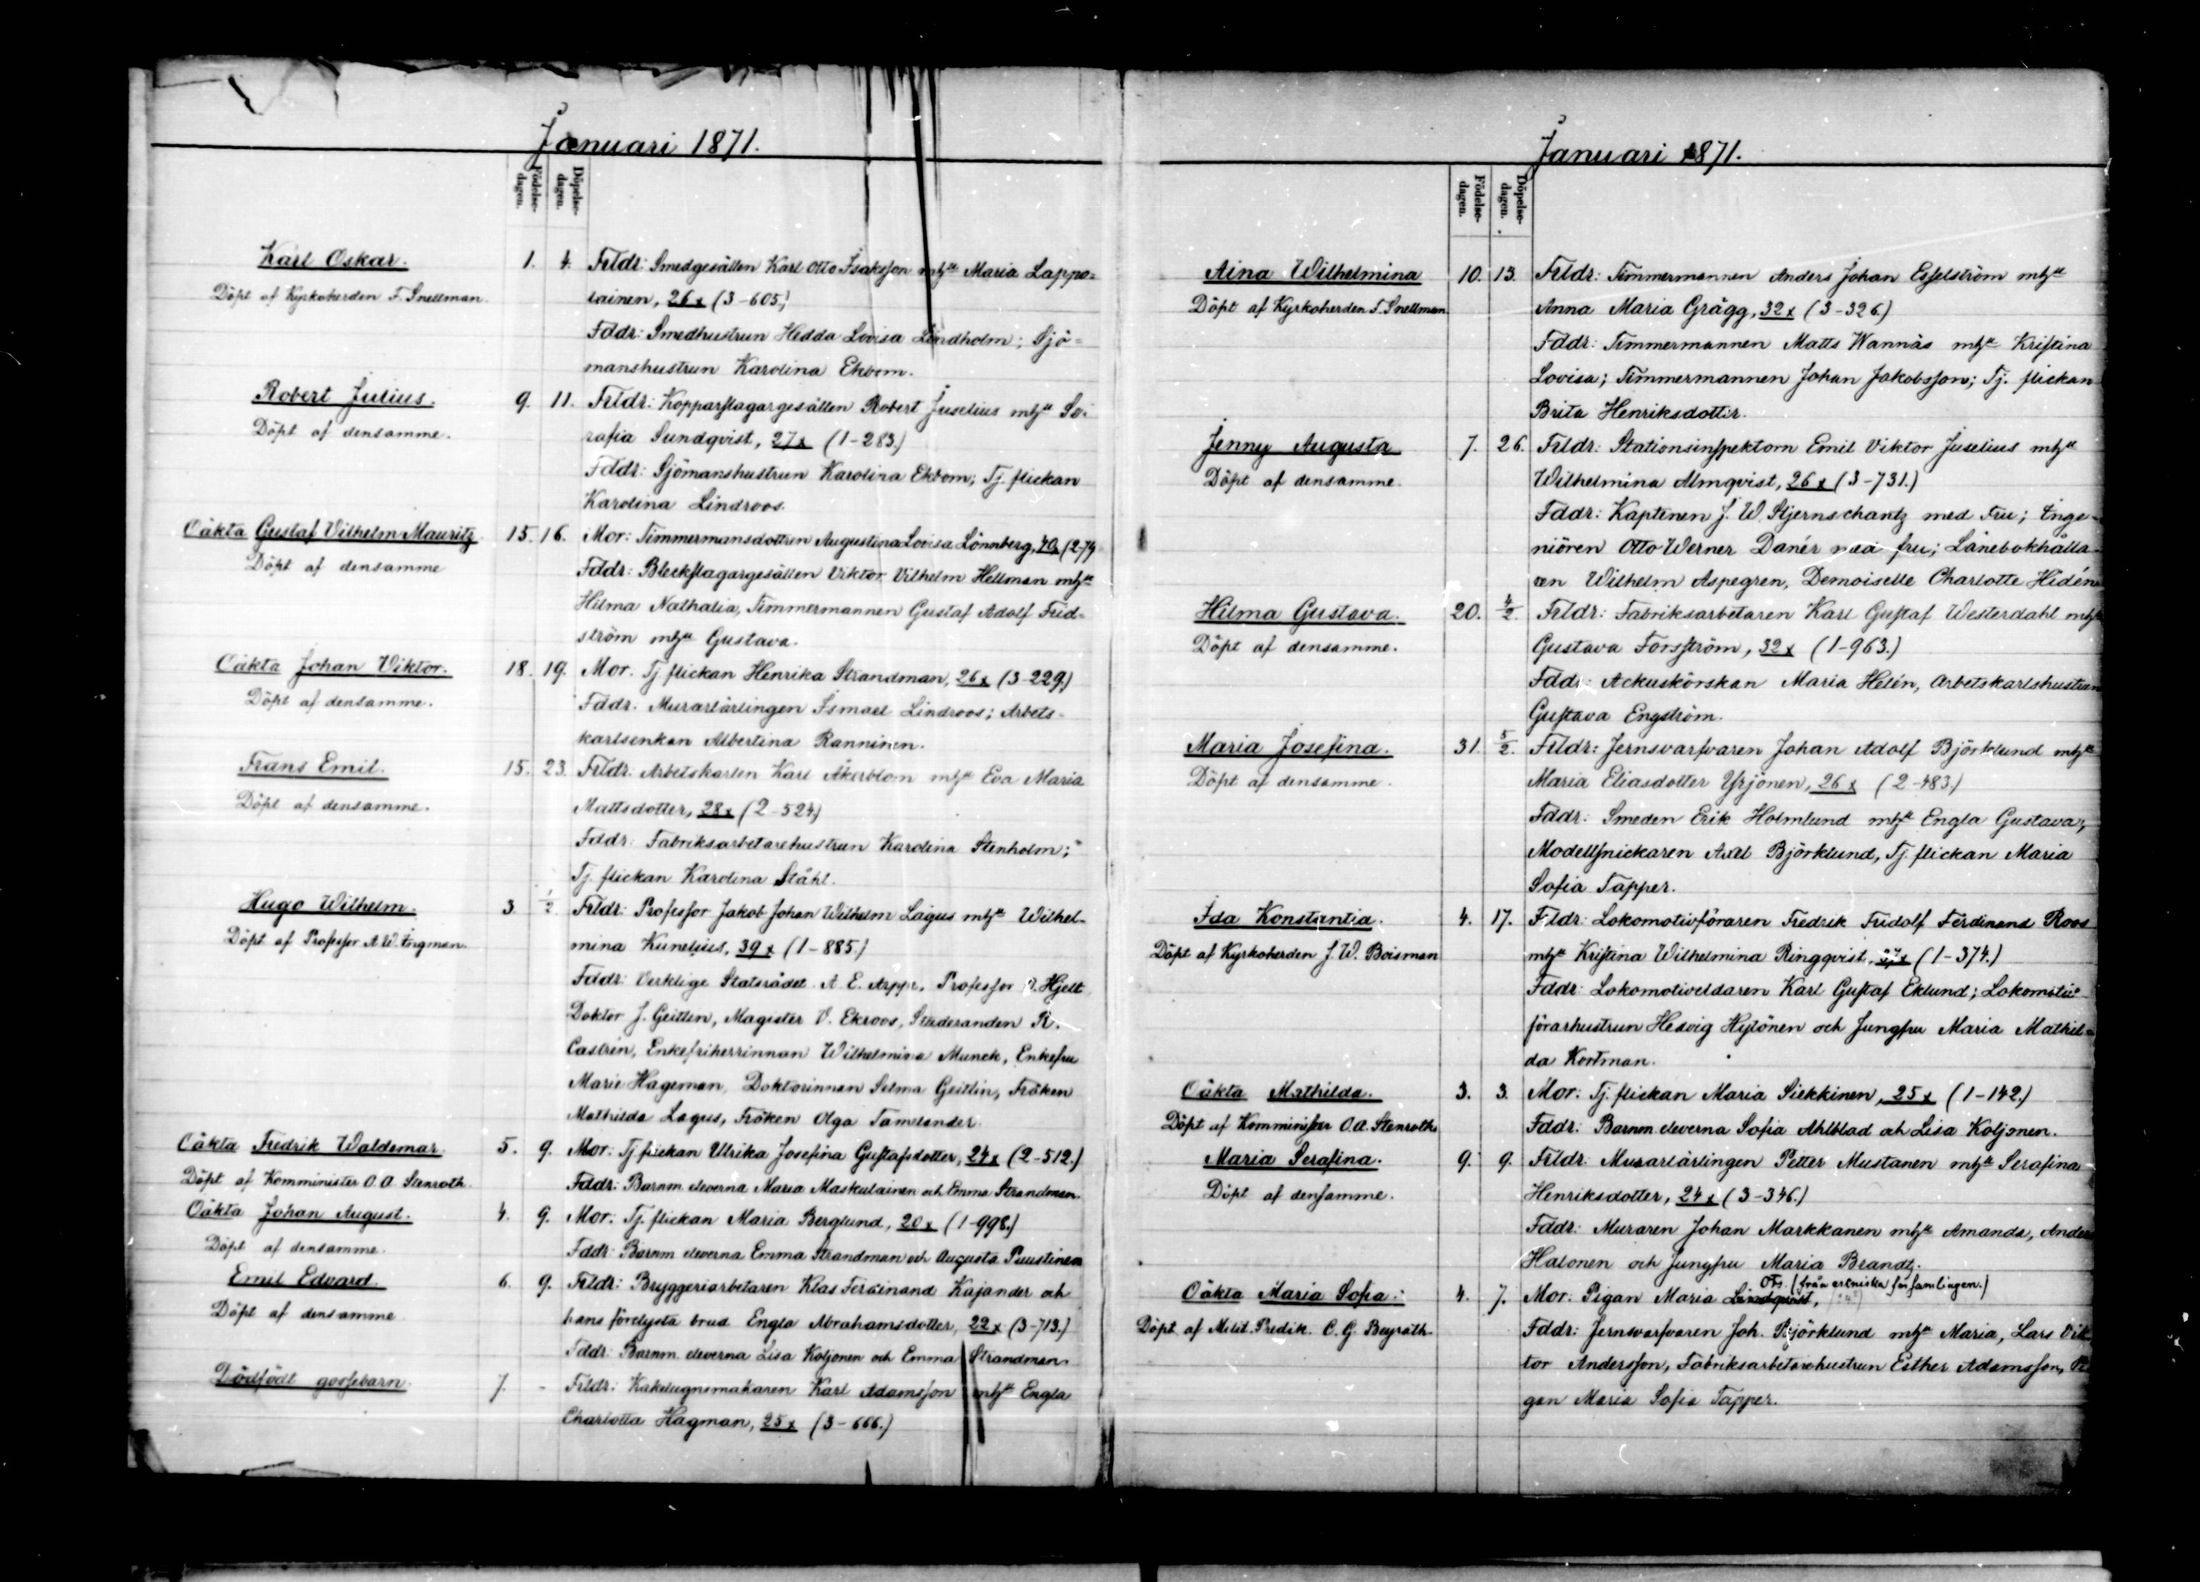 Januari 1871.
Födelse-dagen.
Döpelse-dagen.
Karl Oskar. 1. 4. Frldr: Smedgesällen Karl Otto Isaksson mhst Maria Lappo-
Döpt af Kyrkoherden F. Snellman.
lainen, 26 x (3-605.)
Fddr: Smedhustrun Hedda Lovisa Lindholm; Sjö-
manshustrun Karolina Ekbom.
Robert Julius. 9. 11. Frldr: Kopparslagargesällen Robert Juselius mhst
Döpt af densamme.
rafia Sundqvist, 27 x (1-283.)
Fddr: Sjömanshustrun Karolina Ekbom; Tj. flickan
Karolina Lindroos.
Oäkta Gustaf Vilhelm Mauritz 15. 16. Mor: Timmermansdottren Augustina Lovisa Lönnberg, 40 x (2-74
Döpt af densamme
Fddr: Bleckslagargesällen Viktor Vilhelm Hellman mhst
Hilma Nathalia, Timmermannen Gustaf Adolf Frid-
ström mhst Gustava.
Oäkta Johan Viktor. 18. 19. Mor. Tj. flickan Henrika Strandman, 26 x (3-229.)
Döpt af densamme.
Fddr. Murarlärlingen Ismael Lindroos; Arbets-
karlsenkan Albertina Ranninen.
Frans Emil. 15. 23. Frldr: Arbetskarlen Karl Åkerblom mhst Eva Maria
Döpt af densamme.
Mattsdotter, 28 x (2-524.)
Fddr: Fabriksarbetarehustrun Karolina Stenholm;
Tj. flickan Karolina Ståhl.
Hugo Wilhelm. 3. 1/2 Frldr: Professor Jakob Johan Wilhelm Lagus mhst Wilhel-
Döpt af Professor A. W. Ingman.
mina Kunelius, 39 x (1-885.)
Fddr: Verklige Statsrådet A. E. Arppe, Professor O. Hjelt
Doktor J. Geitlin, Magister V. Ekroos, Studeranden R.
Castrén, Enkefriherrinnan Wilhelmina Munck, Enkefru
Marie Hageman, Doktorinnan Selma Geitlin, Fröken
Mathilda Lagus, Fröken Olga Tamlander.
Oäkta Fredrik Waldemar 5. 9. Mor: Tj. flickan Ulrika Josefina Gustafsdotter, 24 x (2-512.)
Döpt af Komminister O. A. Stenroth.
Fddr: Barnm. eleverna Maria Maskulainen och Emma Strandman.
Oäkta Johan August. 4. 9. Mor. Tj. flickan Maria Berglund, 20 x (1-998.)
Döpt af densamme.
Fddr: Barnm. eleverna Emma Strandman och Augusta Puustinen
Emil Edvard. 6. 9. Frldr: Bryggeriarbetaren Klas Ferdinand Kajander och
Döpt af densamme
hans förelysta brud Engla Abrahamsdotter, 22 x (3-713.)
Fddr. Barnm. eleverna Lisa Koljonen och Emma Strandman
Dödfödt gossebarn. 7. - Frldr: Kakelugnsmakaren Karl Adamsson mhst Engla
Charlotta Hagman, 25 x (3-666.)
Januari 1871.
Födelse-dagen.
Döpelse-dagen.
Aina Wilhelmina 10. 13. Frldr: Timmermannen Anders Johan Esselström mhst
Döpt af Kyrkoherden F. Snellman
Anna Maria Grägg, 32 x (3-326.)
Fddr: Timmermannen Matts Wannäs mhst Kristina
Lovisa; Timmermannen Johan Jakobsson; Tj. flickan
Brita Henriksdotter.
Jenny Augusta 7. 26. Frldr: Stationsinspektorn Emil Viktor Juselius mhst
Döpt af densamme.
Wilhelmina Almqvist, 26 x (3-731.)
Fddr: Kaptenen J. W. Stjernschantz med Fru; Inge-
niören Otto Werner Danér med fru; Länebokhålla-
ren Wilhelm Aspegren, Demoiselle Charlotte Hidén
Hilma Gustava. 20. 4/2. Frldr: Fabriksarbetaren Karl Gustaf Westerdahl mhst
Döpt af densamme.
Gustava Forsström, 32 x (1-963.)
Fddr: Ackuskörskan Maria Helén, Arbetskarlshustrun
Gustava Engström.
Maria Josefina. 31. 5/2. Frldr: Jernsvarfvaren Johan Adolf Björklund mhst
Döpt af densamme.
Maria Eliasdotter Yrjönen, 26 x (2-483.)
Fddr: Smeden Erik Holmlund mhst Engla Gustava;
Modellsnickaren Axel Björklund, Tj. flickan Maria
Sofia Tapper.
Ida Konstantia. 4. 17. Frldr: Lokomotivföraren Fredrik Fridolf Ferdinand Roos
Döpt af Kyrkoherden J. W. Boisman
mhst Kristina Wilhelmina Ringqvist, (1-374.)
Fddr: Lokomotiveldaren Karl Gustaf Eklund; Lokomotiv-
förarhustrun Hesvig Hytönen och Jungfru Maria Mathil-
da Kortman.
Oäkta Mathilda. 3. 3. Mor: Tj. flickan Maria Siekkinen, 25 x (1-142.)
Döpt af Komminister O. A. Stenroth.
Fddr: Barnm. eleverna Sofia Ahlblad och Lisa Koljonen.
Maria Serafina. 9. 9. Frldr: Murarlärlingen Petter Mustanen mhst Serafina
Döpt af densamme.
Henriksdotter, 24 x (3-346.)
Fddr: Muraren Johan Markkanen mhst Amanda, Anders
Halonen och Jungfru Maria Brandt.
Ots. (från estniska församlingen.)
Oäkta Maria Sofia. 4. 7. Mor: Pigan Maria Lindqvist,
Döpt af Milit. Predik. C. G. Beyrath.
Fddr: Jernsvarfvaren Joh. Björklund mhst Maria, Lars Vik-
tor Andersson, Fabriksarbetarehustrun Esther Adamsson, Pi
gan Maria Sofia Tapper.